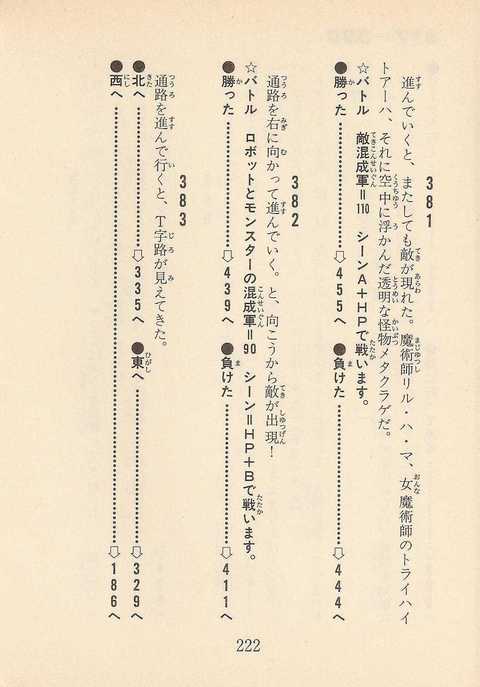 381
進んでいくと、またしても敵が現れた。魔術師リル・ハ・マ、女魔術師のトライハイ
トアーハ、それに空中に浮かんだ透明な怪物メタクラゲだ。
☆バトル 敵混成軍＝110 シーンA＋HPで戦います。
●勝った………⇨455へ ●負けた………⇨444へ
382
通路を右に向かって進んでいく。と、向こうから敵が出現！
☆バトル ロボットとモンスターの混成軍＝90 シーン＝HP＋Bで戦います。
●勝った………⇨439へ ●負けた………⇨411へ
383
通路を進んで行くと、T字路が見えてきた。
●北へ………⇨335へ ●東へ………⇨329へ
●西へ………⇨186へ
222